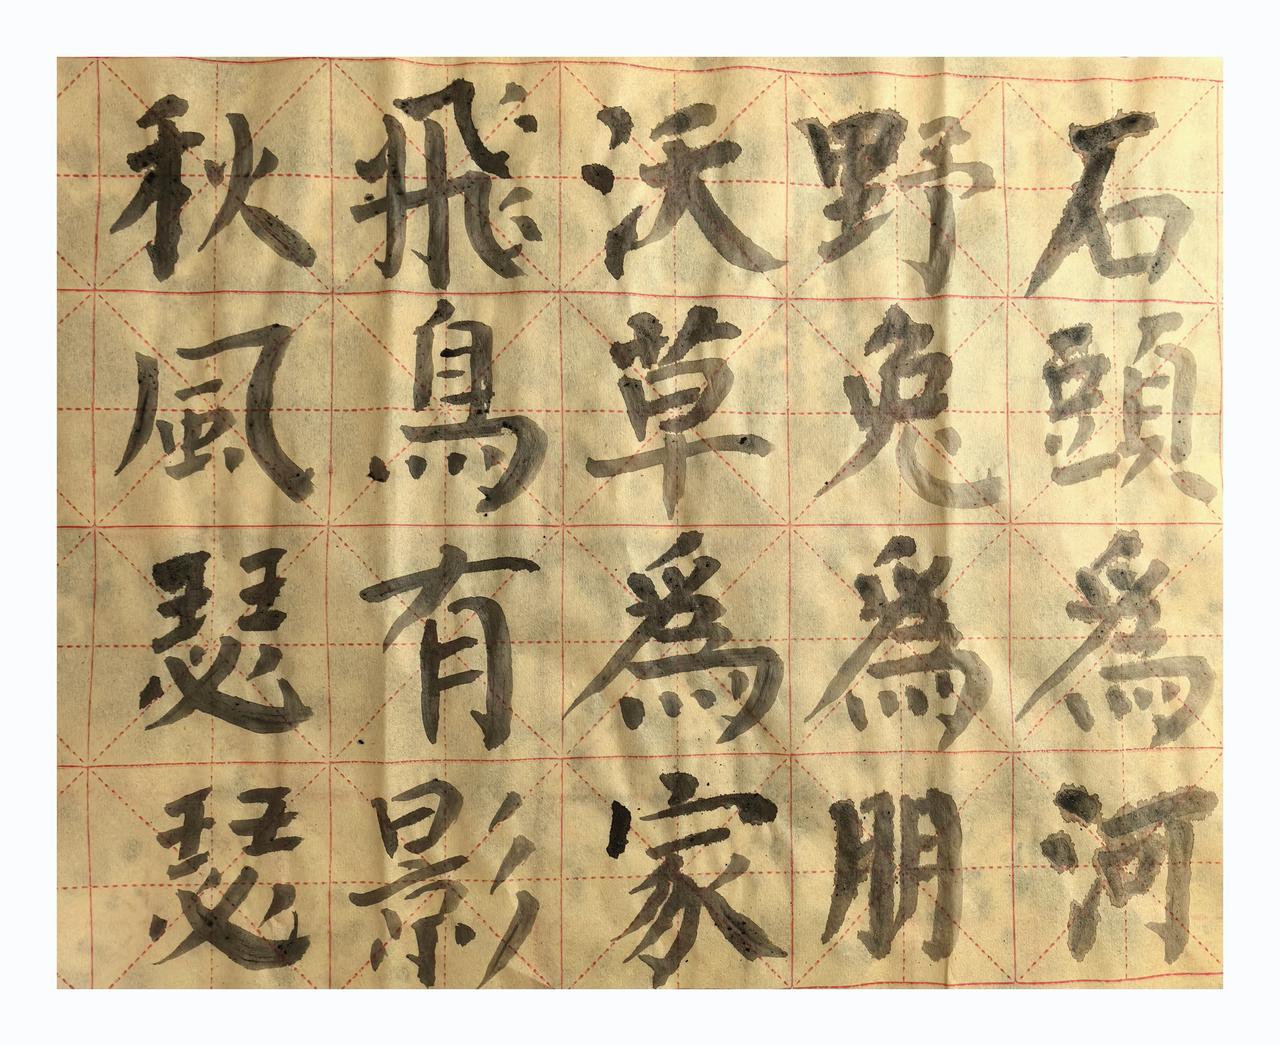 石頭為河
野兔為朋
沃草為家
飛鳥有影
秋風瑟瑟